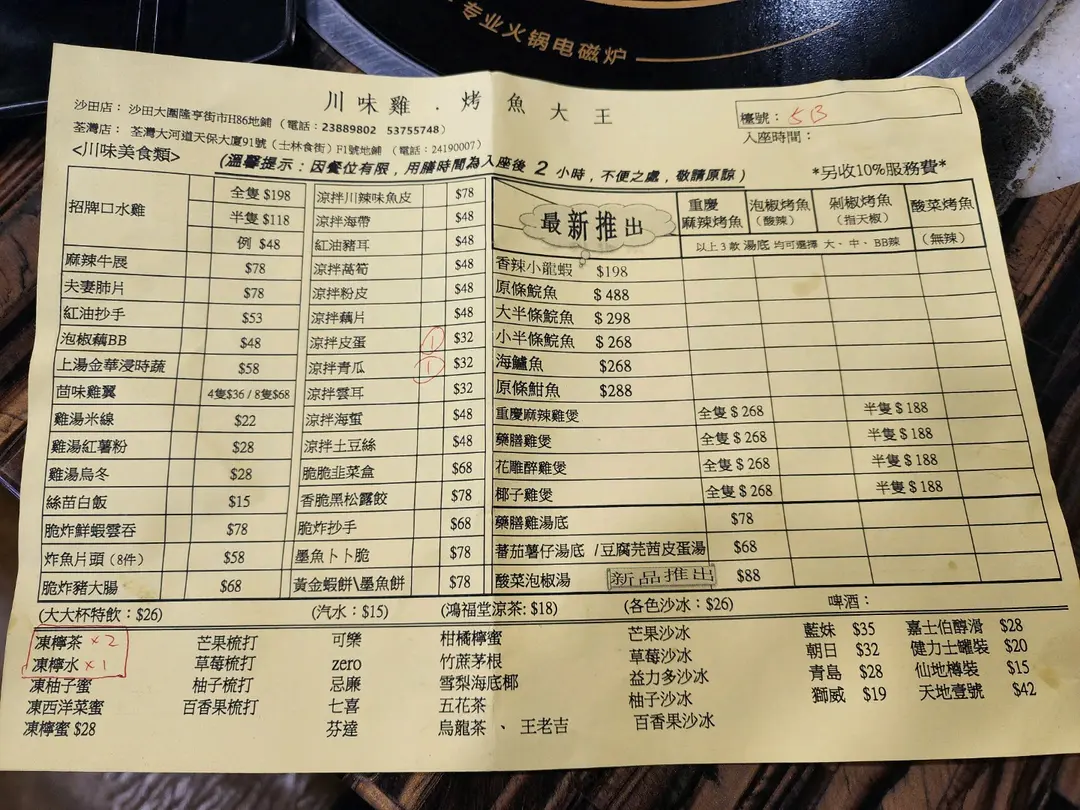 专业火锅电磁炉
川味雞．烤魚大王
沙田店： 沙田大圍隆亨街市H86地鋪 （電話：23889802 53755748）
荃灣店： 荃灣大河道天保大廈91號（士林食街）F1號地鋪 （電話：24190007）
檯號： 5B
入座時間：
<川味美食類>
(溫馨提示：因餐位有限，用膳時間為入座後 2 小時，不便之處，敬請原諒）
*另收10%服務費*
招牌口水雞 全隻 $198
半隻 $118
例 $48
麻辣牛展 $78
夫妻肺片 $78
紅油抄手 $53
泡椒藕BB $48
上湯金華浸時蔬 $58
茴味雞翼 4隻$36 / 8隻$68
雞湯米線 $22
雞湯紅薯粉 $28
雞湯烏冬 $28
絲苗白飯 $15
脆炸鮮蝦雲吞 $78
炸魚片頭（8件） $58
脆炸豬大腸 $68
涼拌川辣味魚皮 $78
涼拌海帶 $48
紅油豬耳 $48
涼拌萵筍 $48
涼拌粉皮 $48
涼拌藕片 $48
涼拌皮蛋 1 $32
涼拌青瓜 1 $32
涼拌雲耳 $32
涼拌海蜇 $48
涼拌土豆絲 $48
脆脆韭菜盒 $68
香脆黑松露餃 $78
脆炸抄手 $68
墨魚卜卜脆 $78
黃金蝦餅\墨魚餅 $78
最新推出
重慶麻辣烤魚
泡椒烤魚（酸辣）
剁椒烤魚（指天椒）
酸菜烤魚（無辣）
以上3款 湯底 均可選擇 大、中、BB辣
香辣小龍蝦 $198
原條鯇魚 $ 488
大半條鯇魚 $ 298
小半條鯇魚 $ 268
海鱸魚 $268
原條魽魚 $288
重慶麻辣雞煲 全隻 $ 268 半隻 $ 188
藥膳雞煲 全隻 $ 268 半隻 $ 188
花雕醉雞煲 全隻 $ 268 半隻 $ 188
椰子雞煲 全隻 $ 268 半隻 $ 188
藥膳雞湯底 $78
蕃茄薯仔湯底 /豆腐芫茜皮蛋湯 $68
酸菜泡椒湯 新品推出 $88
(大大杯特飲：$26)
凍檸茶 ×2
凍檸水 ×1
凍柚子蜜
凍西洋菜蜜
凍檸蜜 $28
芒果梳打
草莓梳打
柚子梳打
百香果梳打
(汽水：$15)
可樂
zero
忌廉
七喜
芬達
(鴻福堂涼茶: $18)
柑橘檸蜜
竹蔗茅根
雪梨海底椰
五花茶
烏龍茶 、王老吉
(各色沙冰：$26)
芒果沙冰
草莓沙冰
益力多沙冰
柚子沙冰
百香果沙冰
啤酒：
藍妹 $35 嘉士伯醇滑 $28
朝日 $32 健力士罐裝 $20
青島 $28 仙地樽裝 $15
獅威 $19 天地壹號 $42